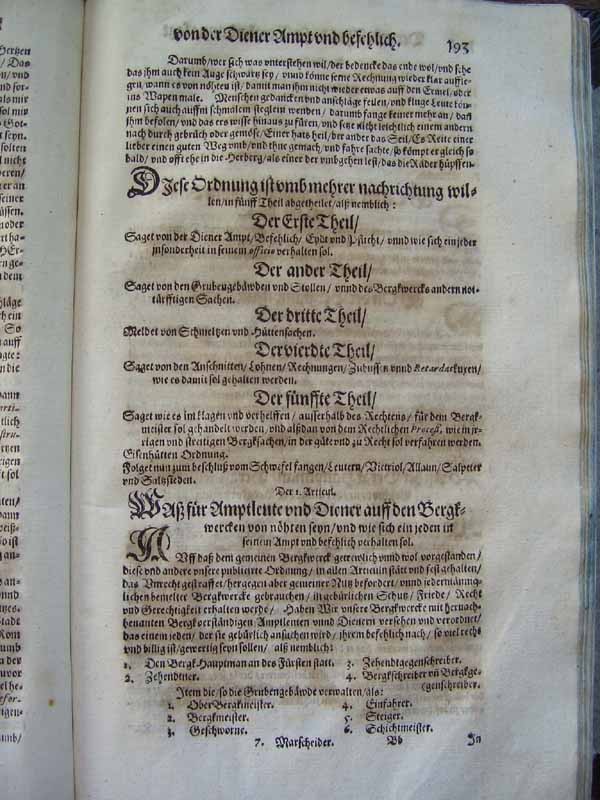 von der Diener Ampt vnd befehlich. 193
Darumb/wer sich was vnterstehen wil/der bedencke das ende wol/vnd sehe
das jhm auch kein Auge schwartz sey / vnnd könne seine Rechnung wieder klar auffle-
gen/wann es von nöhten ist/damit man jhm nicht wieder etwas auff den Ermel/oder
ins Wapen male. Menschen gedancken vnd anschläge feilen/vnd kluge Leute kön-
nen sich auch auffm schmalem stege wenden / darumb fange keiner mehr an/ daß
jhm befolen/vnd das ers wisse hinaus zu füren/vnd setze nicht leichtlich einem andern
nach durch gebrüch oder gemöse/Einer hats heil/der ander das Seil/Es Reite einer
lieber einen guten Weg vmb/vnd thue gemach/vnd fahre sachte/so kömpt er gleich so
bald/vnd offt ehe in die Herberg/als einer der vmbgehen lest/das die Räder hüpffen.
DIese Ordnung ist vmb mehrer nachrichtung wil-
len/in fünff Theil abgetheilet/alß nemblich:
Der Erste Theil/
Saget von der Diener Ampt/Befehlich/ Eydt vnd Pflicht/ vnnd wie sich ein jeder
insonderheit in seinem officio verhalten sol.
Der ander Theil/
Saget von den Grubengebäwden vnd Stollen/ vnnd des Bergkwercks andern not-
türfftigen Sachen.
Der dritte Theil/
Meldet von Schmeltzen vnd Hüttensachen.
Der vierdte Theil/
Saget von den Anschnitten/ Lohnen/ Rechnungen/ Zubussen vnnd Retardatkuxen/
wie es damit sol gehalten werden.
Der fünffte Theil/
Saget wie es im klagen vnd verhelffen / ausserhalb des Rechtens/ für dem Bergk-
meister sol gehandelt werden/ vnd alßdan von dem Rechtlichen Proceß, wie in jr-
rigen vnd streitigen Bergksachen/in der güte vnd zu Recht sol verfahren werden.
Eisenhütten Ordnung.
Folget nun zum beschluß vom Schwefel fangen/Leutern/ Victriol/Allaun/ Salpeter
vnd Saltzsieden.
Der 1. Articul.
WAß für Amptleute vnd Diener auff den Bergk-
wercken von nöhten seyn/vnd wie sich ein jeden in
seinem Ampt vnd befehlich verhalten sol.
NVff daß dem gemeinen Bergkwerck getrewlich vnnd wol vorgestanden/
diese vnd andere vnsere publicirte Ordnung/ in allen Articuln stätt vnd fest gehalten/
das Vnrecht gestraffet/ hergegen aber gemeiner Nutz befördert/ vnnd jedermännig-
lichen benelter Bergkwercke gebrauchen/ in gebürlichen Schutz/ Friede/ Recht
vnd Gerechtigkeit erhalten werde/ Haben Wir vnsere Bergkwercke mit hernach-
benanten Bergkverständigen Amptleuten vnnd Dienern versehen vnd verordnet/
das einem jeden/ der sie gebürlich ansuchen wird/ jhrem befehlich nach/ so viel rechts
vnd billig ist/gewertig seyn sollen/ alß nemblich:
1. Den Bergk-Hauptman an des Fürsten statt.
2. Zehendtner.
3. Zehendtgegenschreiber.
4. Bergkschreiber vñ Bergkge-
(genschreiber.
Item die/so die Grubengebäwde verwalten/als:
1. OberBergkmeister.
2. Bergkmeister.
3. Geschworne.
4. Einfahrer.
5. Steiger.
6. Schichtmeister.
7. Marscheider.
Bb Jn